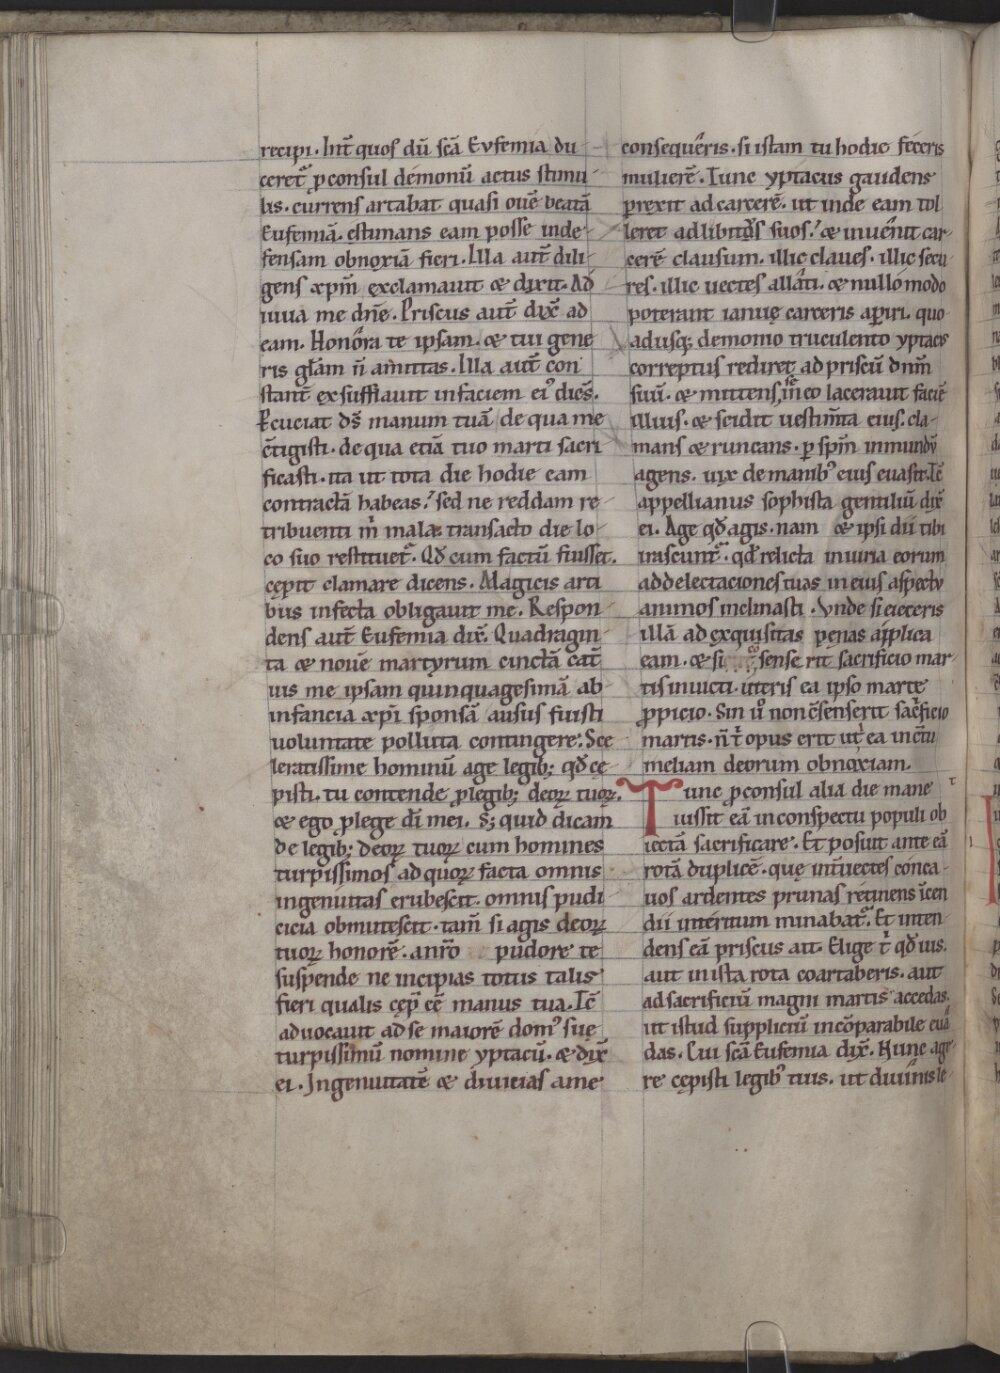 recipi. Int̄ quos dū sc̄a Eufemia du
ceret᷑ ꝓconsul demonū actus stimu
lis. currens artabat quasi ouē beatā
Eufemiā. estimans eam posse inde
fensam obnoxiā fieri. Illa aut̄ dili
gens xp̄m exclamauit & dixit. Ad
iuua me dn̄e. Priscus aut̄ dix̄ ad
eam. Honora te ipsam. & tui gene
ris gl̄am n̄ amittas. Illa aut̄ con
stant̄ exsufflauit infaciem ei᾿ dicēs.
Eruciat ds̄ manum tuā de qua me
c̄tigisti. de qua etiā tuo marti sacri
ficasti. ita ut tota die hodie eam
contractā habeas. sed ne reddam re
tribuenti m̄ mala. transacto die lo
co suo restituet᷑. Qd̄ cum factū fuisset.
cępit clamare dicens. Magicis arti
bus infecta obligauit me. Respon
dens aut̄ Eufemia dix̄. Quadragin
ta & nouē martyrum cinctā cat̄
uis me ipsam quinquagesimā ab
infancia xp̄i sponsā ausus fuisti
uoluntate polluta contingere. Sce
leratissime hominū age legib; qd̄ cę
pisti. tu contende ꝓlegib; deoꝝ tuoꝝ.
& ego ꝓlege dī mei. S; quid dicam
de legib; deoꝝ tuoꝝ cum homines
turpissimos ad quoꝝ facta omnis
ingenuitas erubescit. omnis pudi
cicia obmutescit. tam̄ si agis deoꝝ
tuoꝝ honorē. anr̄o pudore te
suspende ne incipias totus talis
fieri qualis cęp̄ cē manus tua. Tc̄
aduocauit ad se maiorē dom᾿ suę
turpissimū nomine yptacū. & dix̄
ei. Ingenuitatē & diuicias a me
consequeris. si istam tu hodie feceris
mulierē. Tunc yptacus gaudens
perrexit ad carcerē. ut inde eam tol
leret ad libitos suos. & inuenit car
cerē clausum. illic claues. illic secu
res. illic uectes allati. & nullo modo
poterant ianuę carceris aperiri. quo
adusq; demonio truculento yptacus
correptus rediret ad priscū dn̄m
suū. & mittens in eo lacerauit faciē
illius. & scidit uestim̄ta eius. cla
mans & runcans. ꝑ sp̄m inmundū
agens. uix de manib᾿ eius euasit. Tc̄
appellianus sophista gentiliū dix̄
ei. Age qd̄ agis. nam & ipsi dii tibi
irascunt᷑. qd̄ relicta iniuria eorum
ad delectaciones tuas in eius aspectu
animos inclinasti. Vnde si eieceris
illā ad exquisitas penas applica
eam. & si senserit sacrificio mar
tis inuicti. uteris ea ipso marte
ꝓpicio. Sin u̓ non c̄senserit sac̓ficio
martis. n̄ t̓ opus erit ut̓ ea inc̄tu
meliam deorum obnoxiam.
Tunc ꝓconsul alia die mane
iussit eā inconspectu populi ob
iectā sacrificare. Et posuit ante eā
rotā duplicē. quę int̄ uectes conca
uos ardentes prunas retinens īcen
dii interitum minabat᷑. Et inten
dens eā priscus ait. Elige t̓ qd̄ uis.
aut in ista rota coartaberis. aut
ad sacrificiū magni martis accedas.
ut istud suppliciū incōparabile eua
das. Cui sc̄a Eufemia dix̄. Hunc age
re cępisti legib᾿ tuis. ut diuinis le